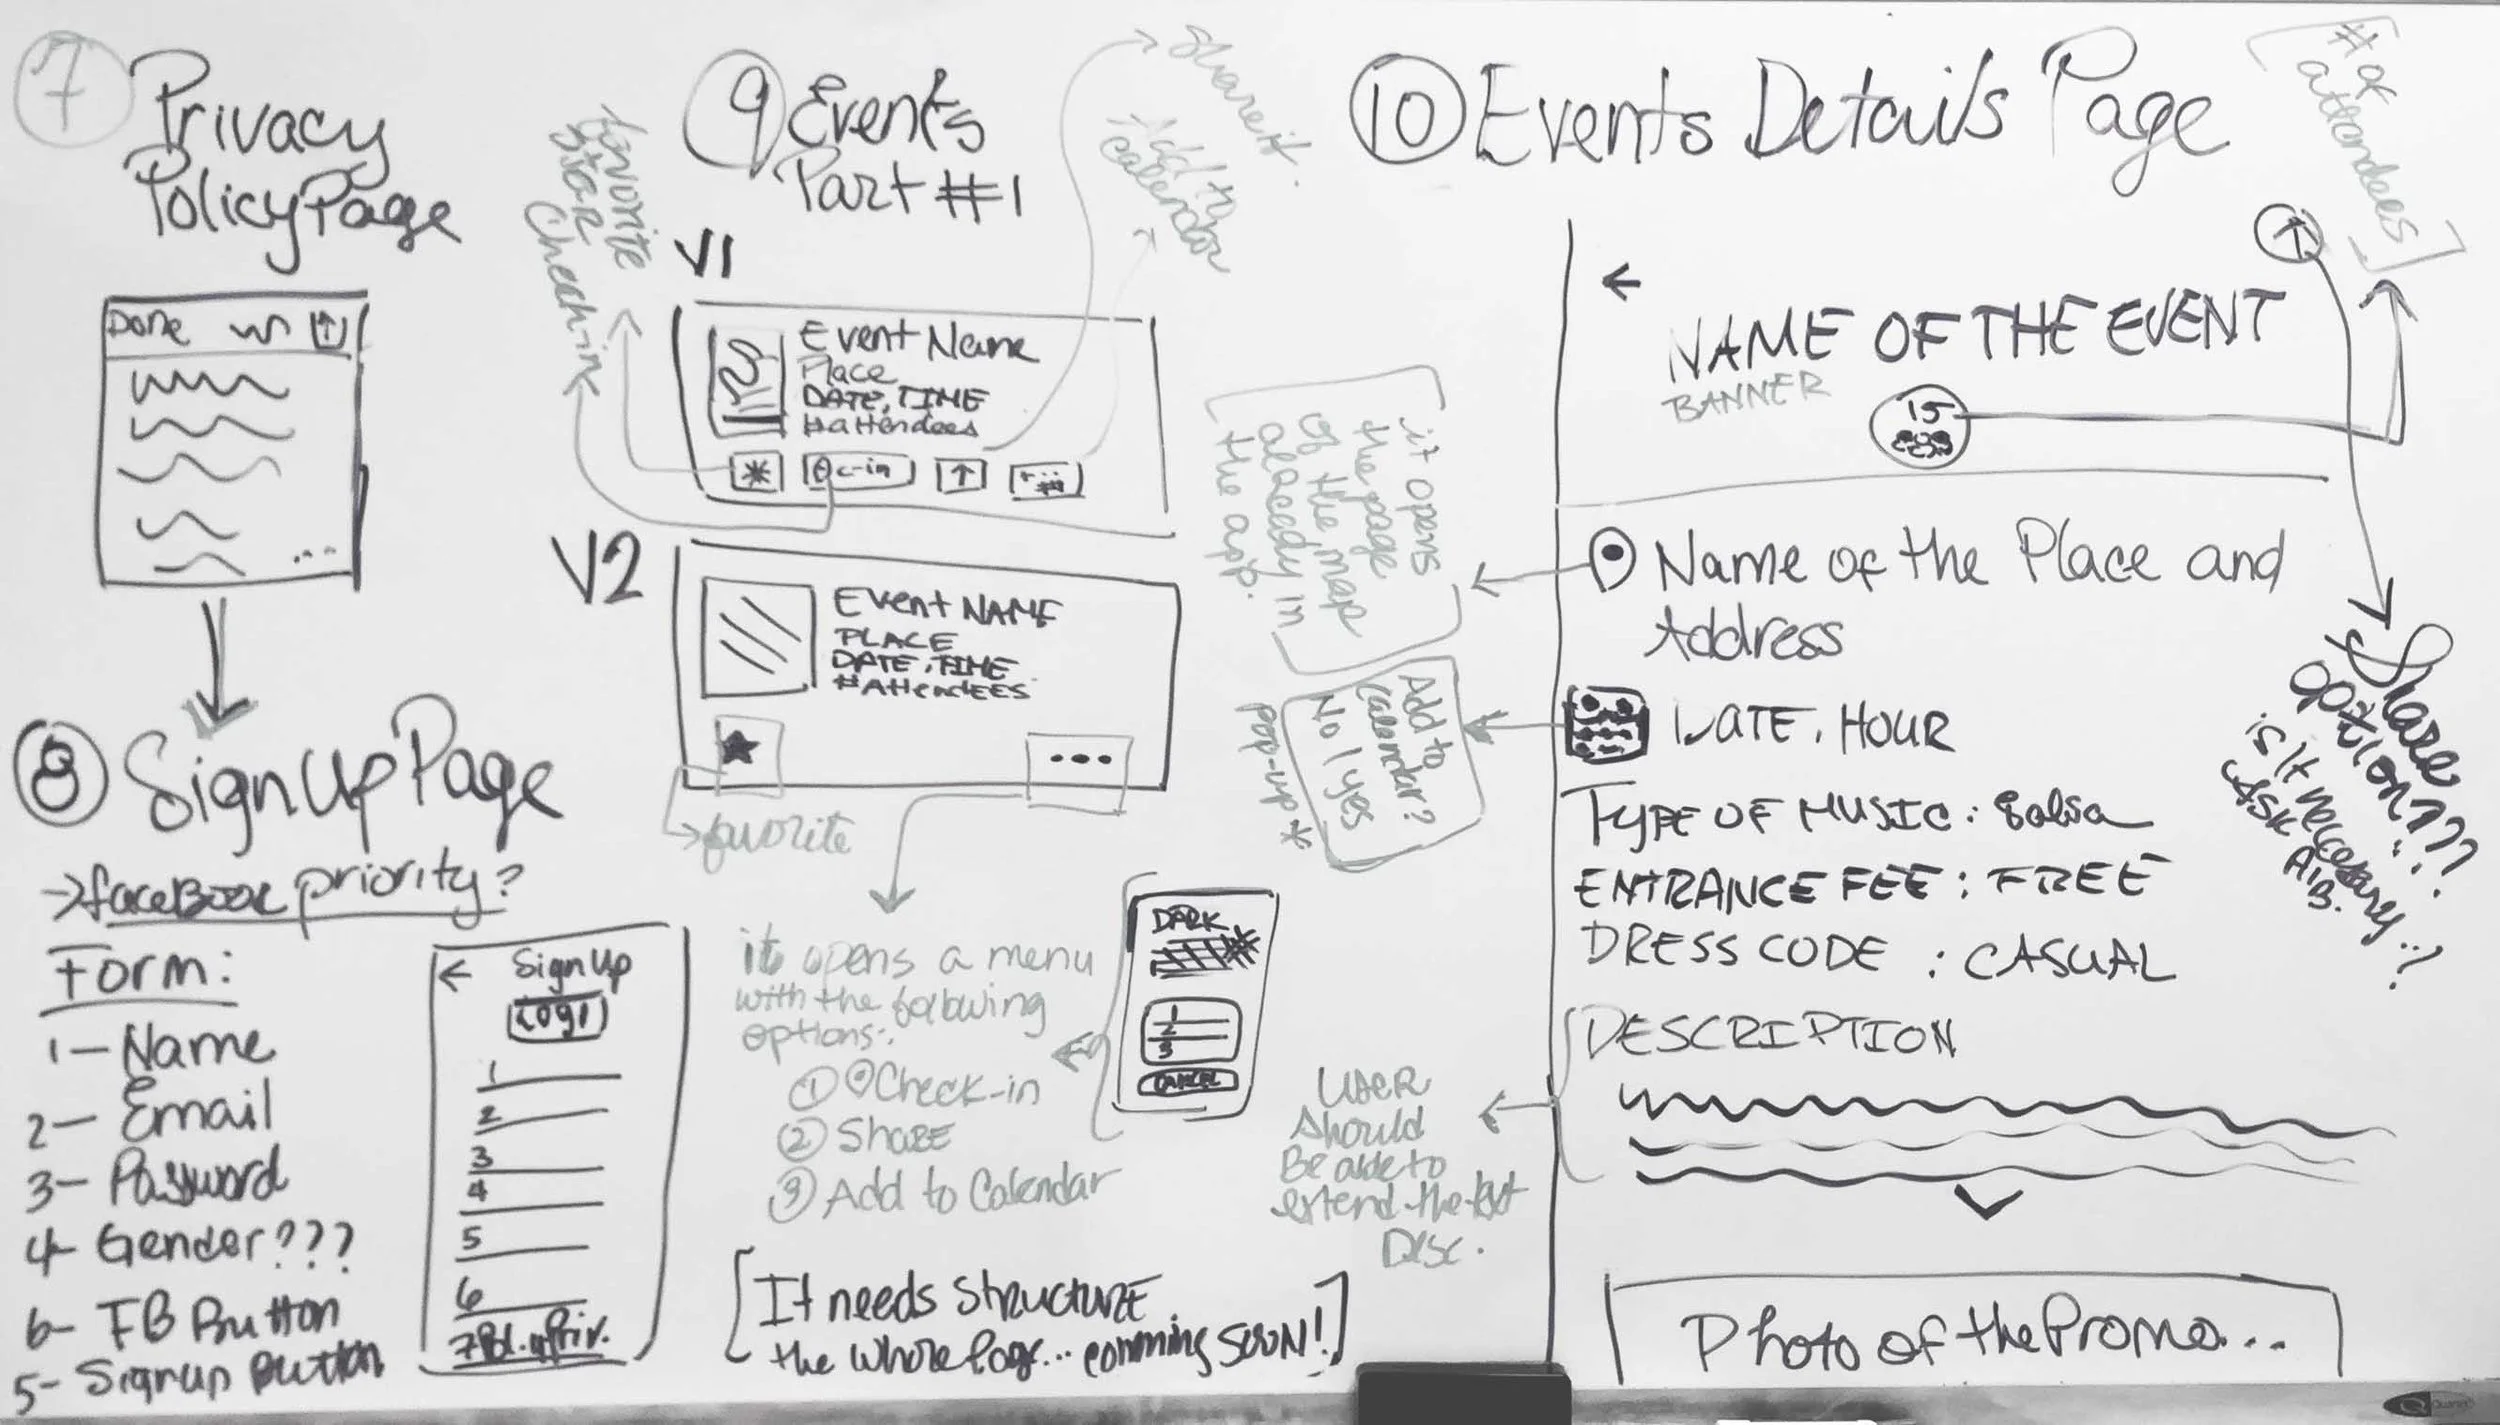 7 Privacy
Policy Page
Done
8 Sign Up Page
→ faceBook priority?
Form:
1- Name
2- Email
3- Password
4- Gender???
6- FB Button
5- Signup Button
← Sign Up
Logo
1
2
3
4
5
6
7 Pol. Priv.
9 Events
Part #1
favorite
star
Check-in
Share it.
Add to
calendar
V1
Event Name
Place
DATE, TIME
#attendees
c-in
V2
Event NAME
PLACE
DATE, TIME
#AttendEES
favorite
it opens a menu
with the following
options:
① Check-in
② Share
③ Add to Calendar
DARK
1
2
3
CANCEL
[It needs structure
the whole Page... comming SOON!]
10 Events Details Page
# of
attendees
←
NAME OF THE EVENT
BANNER
15
it opens
the page
of the map
already in
the app.
Name of the Place and
Address
Add to
calendar?
No | yes
pop-up *
DATE, HOUR
TYPE OF MUSIC: Salsa
ENTRANCE FEE: FREE
DRESS CODE: CASUAL
DESCRIPTION
User
should
Be able to
extend the text
Disc.
Share
option???
is it necessary..?
ASK
Photo of the Promo...